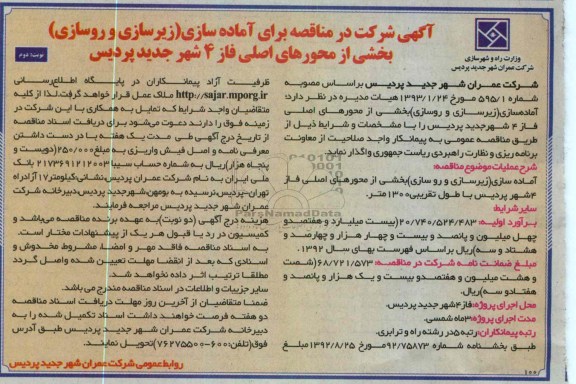 آگهی شرکت در مناقصه برای آماده سازی(زیرسازی و روسازی)
بخشی از محورهای اصلی فاز ۴ شهر جدید پردیس
نوبت: دوم
وزارت راه و شهرسازی
شرکت عمران شهر جدید پردیس
شرکت عمران شهر جدید پردیس براساس مصوبه
شماره ۵۹۵/۱ مورخ ۱۳۹۳/۱/۲۴ هیات مدیره در نظر دارد:
آماده‌سازی(زیرسازی و روسازی)بخشی از محورهای اصلی
فاز ۴ شهرجدید پردیس را با مشخصات و شرایط ذیل از
طریق مناقصه عمومی به پیمانکار واجد صلاحیت از معاونت
برنامه ریزی و نظارت راهبردی ریاست جمهوری واگذار نماید.
شرح عملیات موضوع مناقصه:
آماده سازی(زیرسازی و روسازی)بخشی از محورهای اصلی فاز
۴شهر پردیس با طول تقریبی۱۳۰۰متر.
سایر شرایط:
برآورد اولیه: ۲۰/۷۴۰/۵۲۴/۴۸۳(بیست میلیارد و هفتصدو
چهل میلیون و پانصد و بیست و چهار هزار و چهارصد و
هشتاد و سه)ریال براساس فهرست بهای سال ۱۳۹۲.
مبلغ ضمانت نامه شرکت در مناقصه: ۶۸/۷۲۱/۵۷۳(شصت
و هشت میلیون و هفتصدو بیست و یک هزار و پانصد و
هفتادو سه)ریال.
محل اجرای پروژه:فاز۴شهر جدید پردیس.
مدت اجرای پروژه:۳ماه شمسی.
رتبه پیمانکاران:رتبه۵در رشته راه و ترابری.
طبق بخشنامه شماره ۹۲/۷۵۸۷۳مورخ ۱۳۹۲/۸/۲۵ مبلغ
ظرفیت آزاد پیمانکاران در پایگاه اطلاع‌رسانی
http://sajar.mporg.ir ملاک عمل قرار خواهد گرفت.لذا از کلیه
متقاضیان واجد شرایط که تمایل به همکاری با این شرکت در
زمینه فوق را دارند دعوت می‌شود برای دریافت اسناد مناقصه
از تاریخ درج آگهی طی مدت یک هفته با در دست داشتن
معرفی نامه و اصل فیش واریزی به مبلغ۲۵۰/۰۰۰(دویست و
پنجاه هزار)ریال به شماره حساب سیبا ۲۱۷۳۶۹۱۲۱۲۰۰۳ بانک
ملی ایران به نام شرکت عمران پردیس نشانی:کیلومتر۱۷ آزادراه
تهران-پردیس،نرسیده به بومهن،شهرجدید پردیس،دبیرخانه شرکت
عمران شهر جدید پردیس مراجعه فرمایند.
هزینه درج آگهی (دو نوبت)به عهده برنده مناقصه می‌باشد و
کمیسیون در رد یا قبول هر یک از پیشنهادات مختار است.
به اسناد مناقصه فاقد مهر و امضا، مشروط مخدوش و
اسنادی که بعد از انقضا مهلت تعیین شده واصل گردد
مطلقا ترتیب اثر داده نخواهد شد.
سایر جزییات و اطلاعات در اسناد مناقصه مندرج می‌باشد.
ضمنا متقاضیان از آخرین روز مهلت دریافت اسناد مناقصه
دو هفته فرصت خواهند داشت اسناد تکمیل شده را به
دبیرخانه شرکت عمران شهر جدید پردیس طبق آدرس
فوق(تلفن:۶۰۰-۷۶۲۷۵۵۰۰)تحویل نمایند.
روابط عمومی شرکت عمران شهر جدید پردیس
ParsNamadData